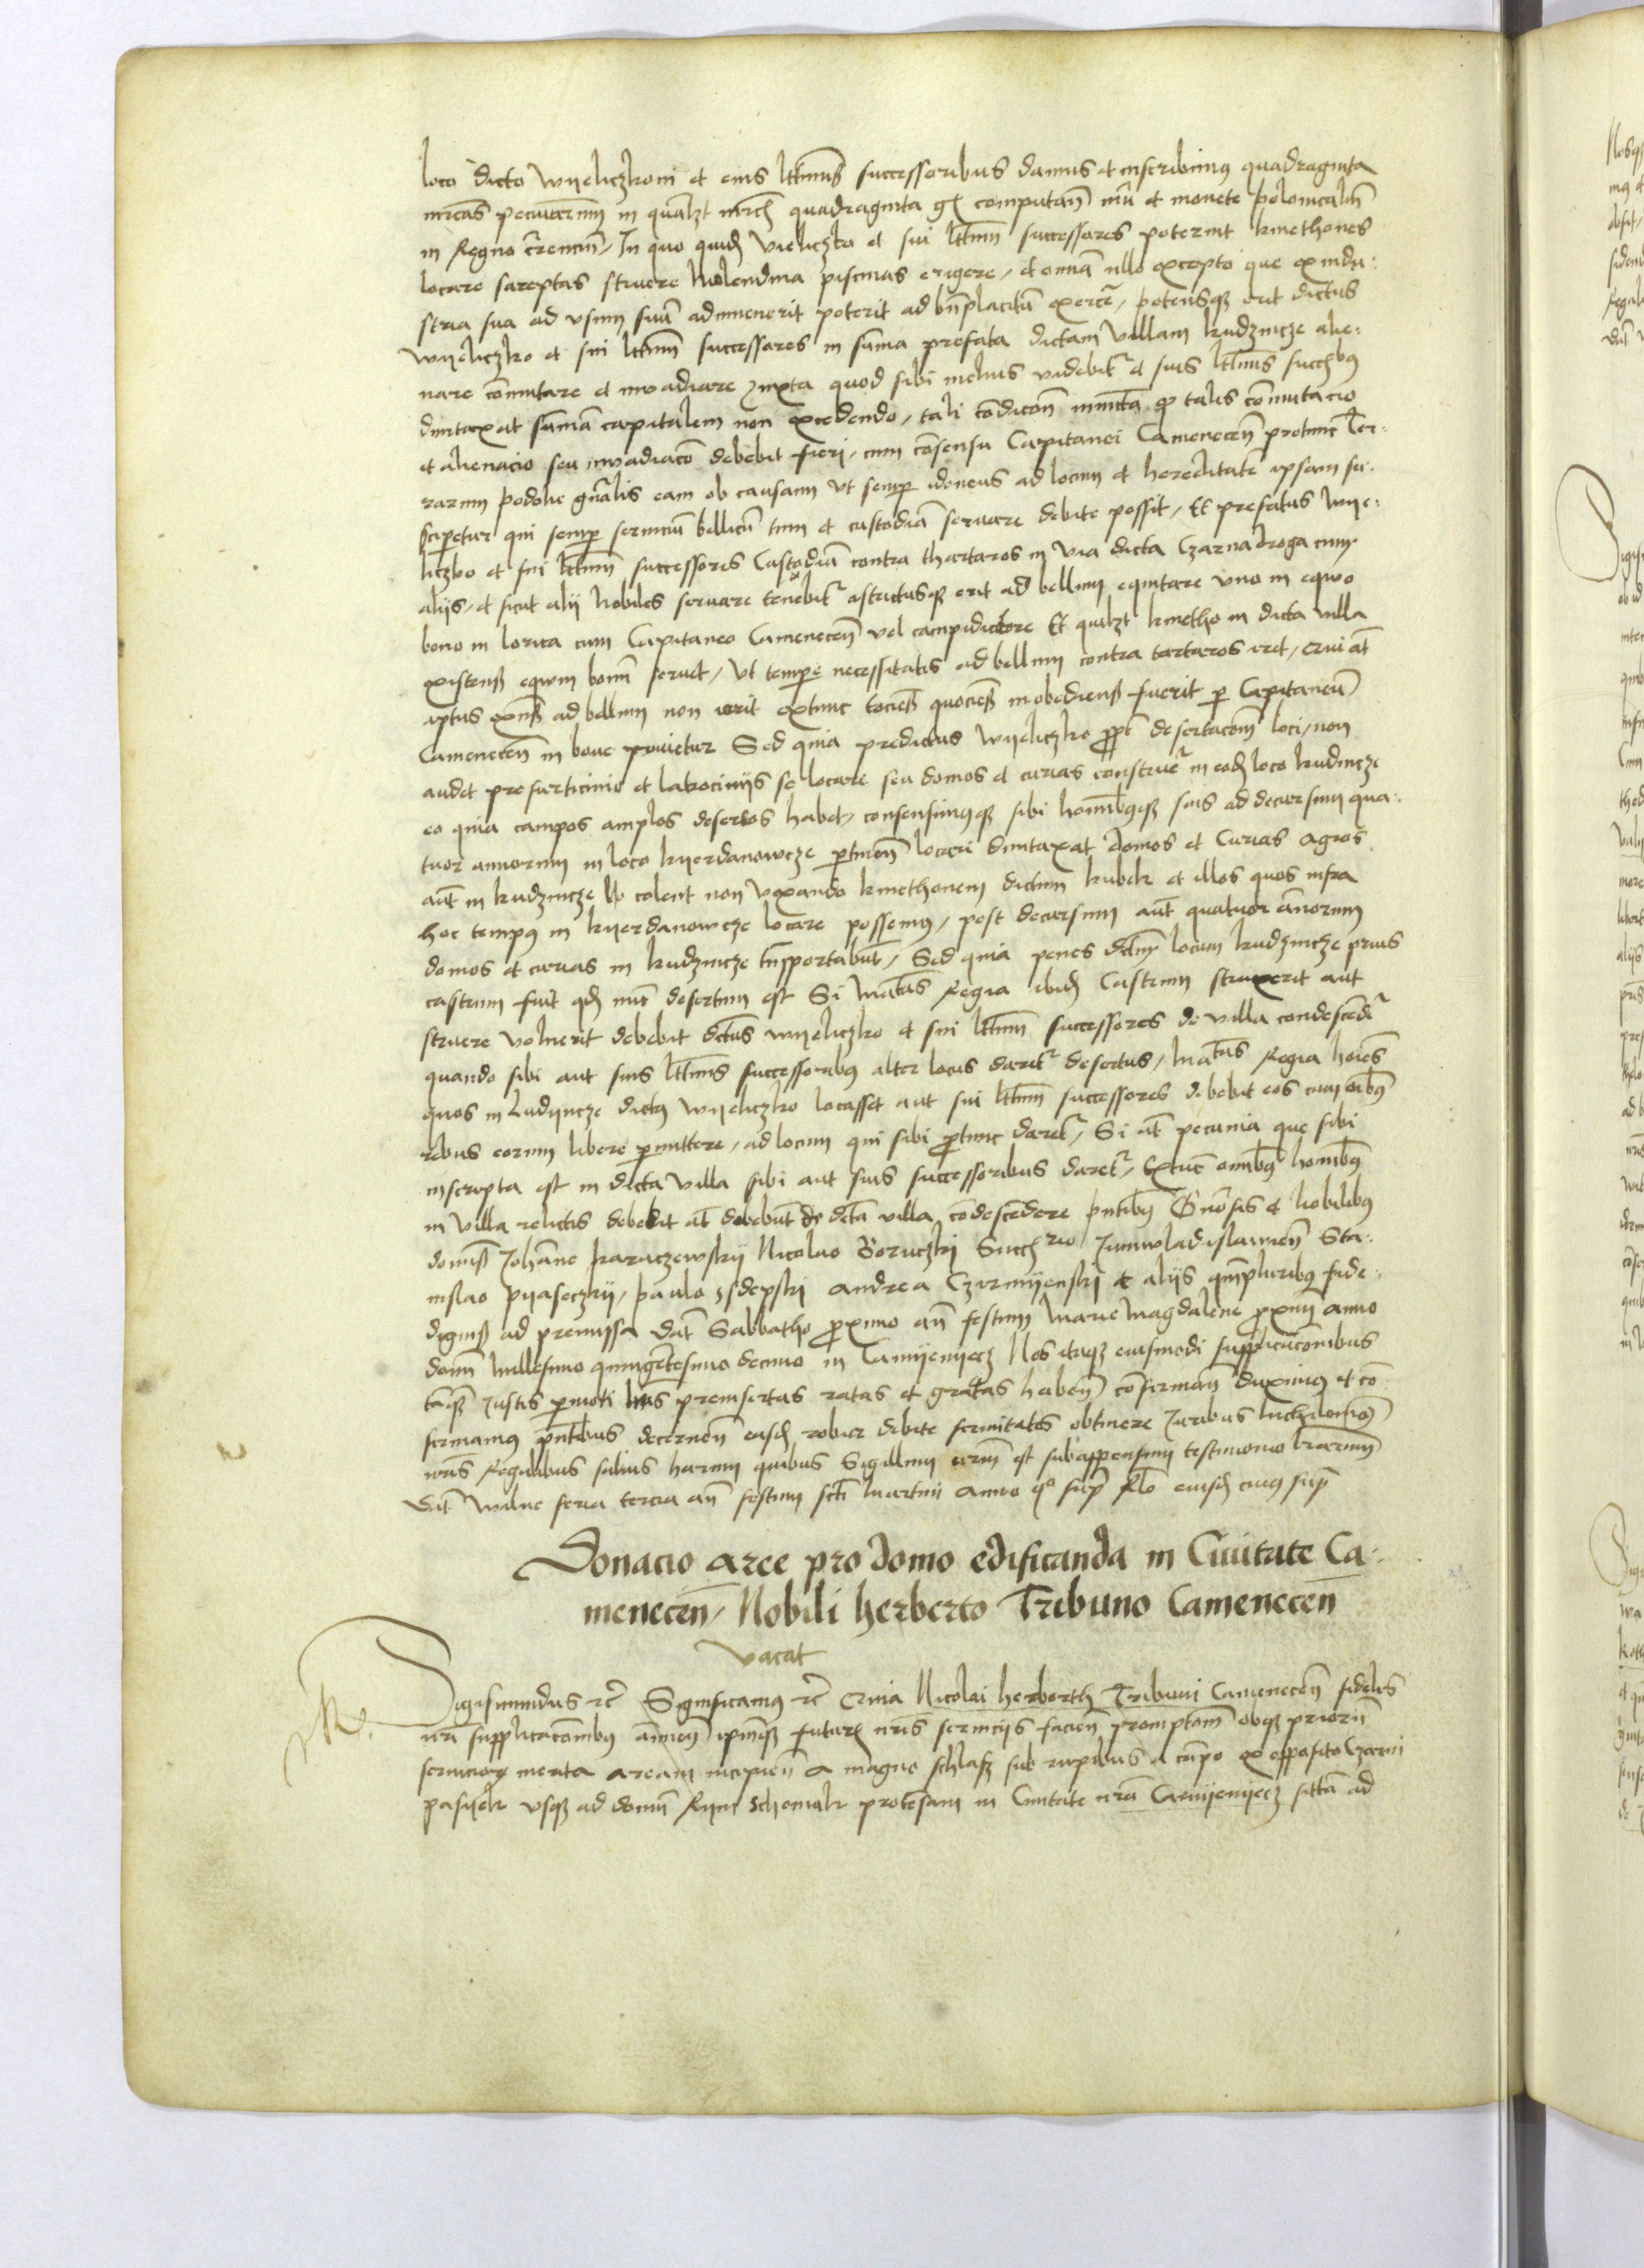 loco dicto wyeliczkoni et eius lttimis successoribus damus et inscribimus quadraginta
mrcas pecuniarum in qualzt mrca quadraginta gs computan nui et monete polonicalis
in Regno curren In quo quidem vieliczko et sui lttimi successores poterint kmethones
locare sareptas struere Molendina piscinas erigere, et omnia nullo excepto que exindu:
stria sua ad usum suum adinvenerit poterit ad bnplacitum exercere, potensque erit dictus
wyeliczko et sui lttimi successores in suma prefata dictam villam kudzincze alie:
nare comutare et invadiare Juxta quod sibi melius videbitur et suis lttimis succibus
dumtaxat sumam capitalem non excedendo, tali condicon mixta q talis comutacio
et alienacio seu invadiaco debebit fieri, cum consensu Capitanei Camenecen protunc Ter:
rarum podolie gnralis eam ob causam ut semper idoneus ad locum et hereditate ipsam su:
sciperetur qui semper servicium bellicum tum et custodiam servare debite possit, Et prefatus wye:
liczko et sui lttimi successores Custodiam contra thartaros in via dicta Czarna droga cum
aliis, et sicut alii Nobiles servare tenebitur astrictusque erit ad bellum equitare uno in equo
bono in lorica cum Capitaneo Camenecen vel campiductore Et quilzt kmetho in dicta villa
existens equum bonum servet, Ut tempore necessitatis ad bellum contra tartaros iret, cui at
aptus existens ad bellum non ierit extunc tociens quociens inobediens fuerit per Capitaneum
Camenecen in bove privetur Sed quia predictus wyeliczko propter desertacom loci, non
audet pro furticinio et latrociniis se locare seu domos et curias construere in eodem loco kudincze
eo quia campos amplos desertos habet, consensimusque sibi hominibusque suis ad decursum qua:
tuor annorum in loco kyerdanowcze pertinen locari dumtaxat domos et Curias Agros
aut in kudzincze colent non vexando kmethonem dictum kubek et illos quos infra
hoc tempus in kyerdanowcze locare possemus, post decursum aut quatuor annorum
domos et curias in kudzincze transportabunt, Sed quia penes dictum locum kudzincze prius
castrum fuit quod nunc desertum est Si Matas Regia ibidem Castrum struxerit aut
struere voluerit debebit dictus wyeliczko et sui lttimi successores de villa condescedere
quando sibi aut suis lttimis successoribus alter locus daretur desertus, Matas Regia hoies
quos in Ludyncze dictus wyeliczko locasset aut sui lttimi successores debebit eos cum oibus
rebus eorum libere permittere, ad locum qui sibi protunc daretur, Si at pecunia que sibi
inscripta est in dicta villa sibi aut suis successoribus daretur, Extunc omnibus hominibus
in villa relictis debebit at debebunt de dicta villa condescendere pntibus Gnosis et Nobilibus
dominis Johanne karaczewsky Nicolao Boruczki Succ rio Juniwladislavien Sta:
nislao pyaseczky, paulo zsdepski Andrea Czirmyenski et aliis quampluribus fide:
dignis ad premissa Dat Sabbatho proximo an festum Marie Magdalene proximum anno
domini Millesimo quingentesimo decimo in Camyenyecz Nos itaque eiusmodi supplicaconibus
tanquam Justis permoti lras preinsertas ratas et gratas haben confirman duximus et co:
firmamus pntibus decernen easdem robur debite firmitatis obtinere Juribus
nris Regalibus salvis harum quibus Sigillum nrum est subappensum testimonio lrarum
Dat wilne feria tercia an festum scti Martini Anno quo supra Relo eiusdem cuius supra
Donacio aree pro domo edificanda in Civitate Ca:
menecen, Nobili herberto Tribuno Camenecen
vacat
R.
Sigismundus etc Significamus etc Quia Nicolai herborth Tribuni Camenecen fidelis
nri supplicaconibus annuen ipmque futuris nris serviciis facien promptiorem obque priorum
serviciorum merita aream incipien a magno schlasz sub rupibus a campo ex opposito Czarni
pasyek usque ad domum Rym Schomak protesam in Civitate nra Camyenyecz sittam ad